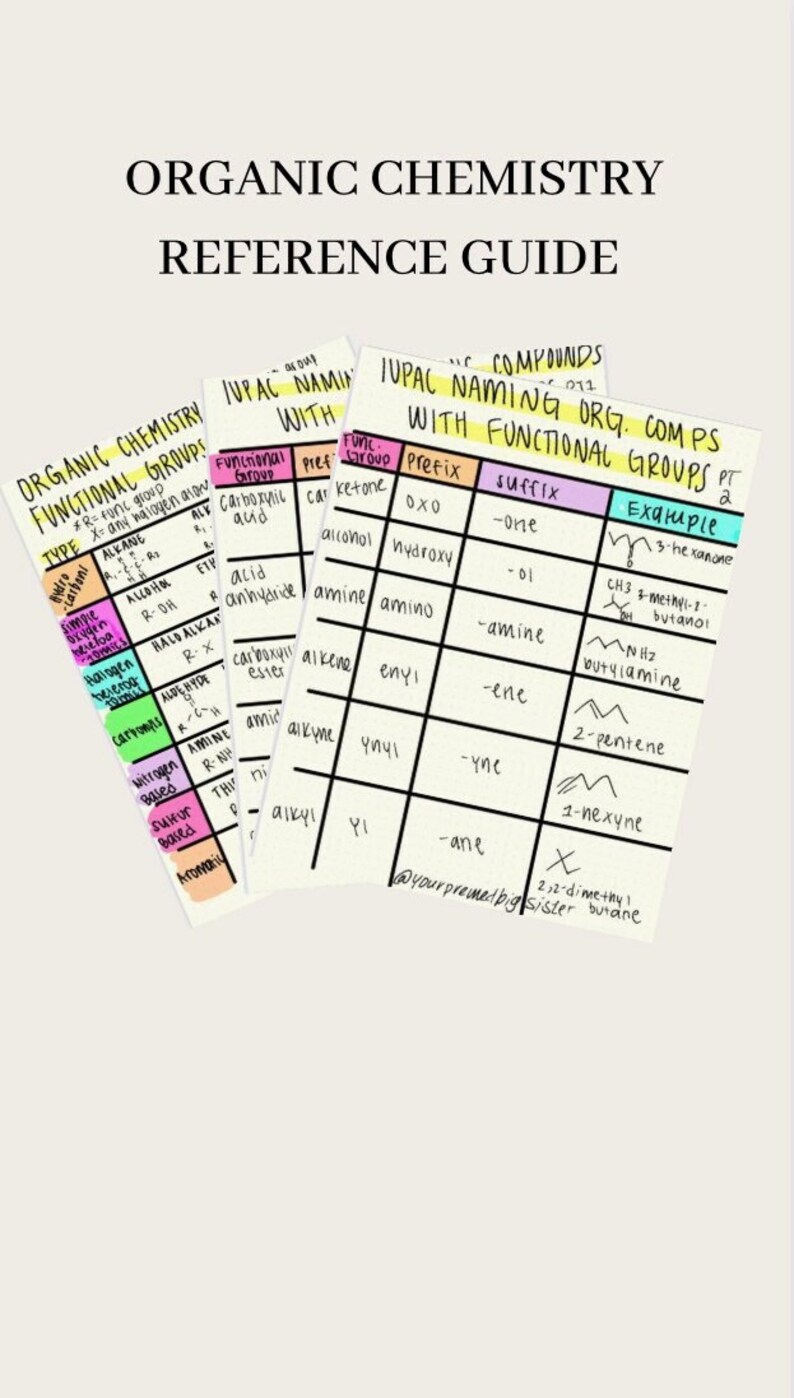 ORGANIC CHEMISTRY
REFERENCE GUIDE
ORGANIC CHEMISTRY
FUNCTIONAL GROUPS
*R= func group
X= any halogen atom
TYPE
Hydro
-carbons
ALKANE
SIMPLE
OXYGEN
ALCOHOL
R-OH
Halogen
HALOALKAN
R-X
Carbonyls
ALDEHYDE
R-C-H
Nitrogen
Based
AMINE
R-NH
Sulfur
Based
Aromatic
group
IUPAC NAMIN
WITH
Functional
Group
Pref
carboxylic
acid
acid
anhydride
ester
COMPOUNDS
PT1
IUPAC NAMING ORG. COMPS
WITH FUNCTIONAL GROUPS PT
2
Func.
Group
Prefix
suffix
Example
ketone
oxo
-one
O
3-hexanone
alcohol
hydroxy
-ol
CH3
OH
3-methyl-2-
butanol
amine
amino
-amine
NH2
butylamine
alkene
enyl
-ene
2-pentene
alkyne
ynyl
-yne
1-hexyne
alkyl
yl
-ane
2,2-dimethyl
butane
@yourpremedbigsister